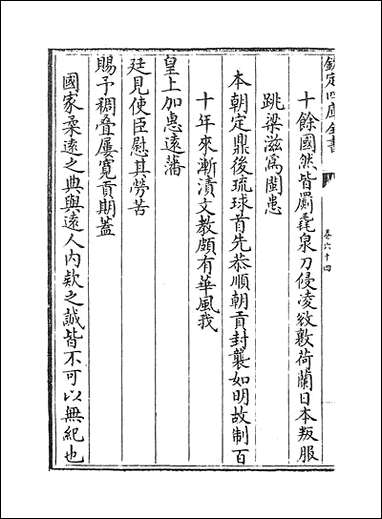 欽定四庫全書
卷六十四
十餘國然皆劚毳泉刀侵凌紋斁荷蘭日本叛服
跳梁滋為閩患
本朝定鼎後琉球首先恭順朝貢封襲如明故制百
十年來漸漬文教頗有華風我
皇上加惠遠藩
廷見使臣慰其勞苦
賜予稠叠屢寬貢期蓋
國家柔遠之典與遠人内欵之誠皆不可以無紀也